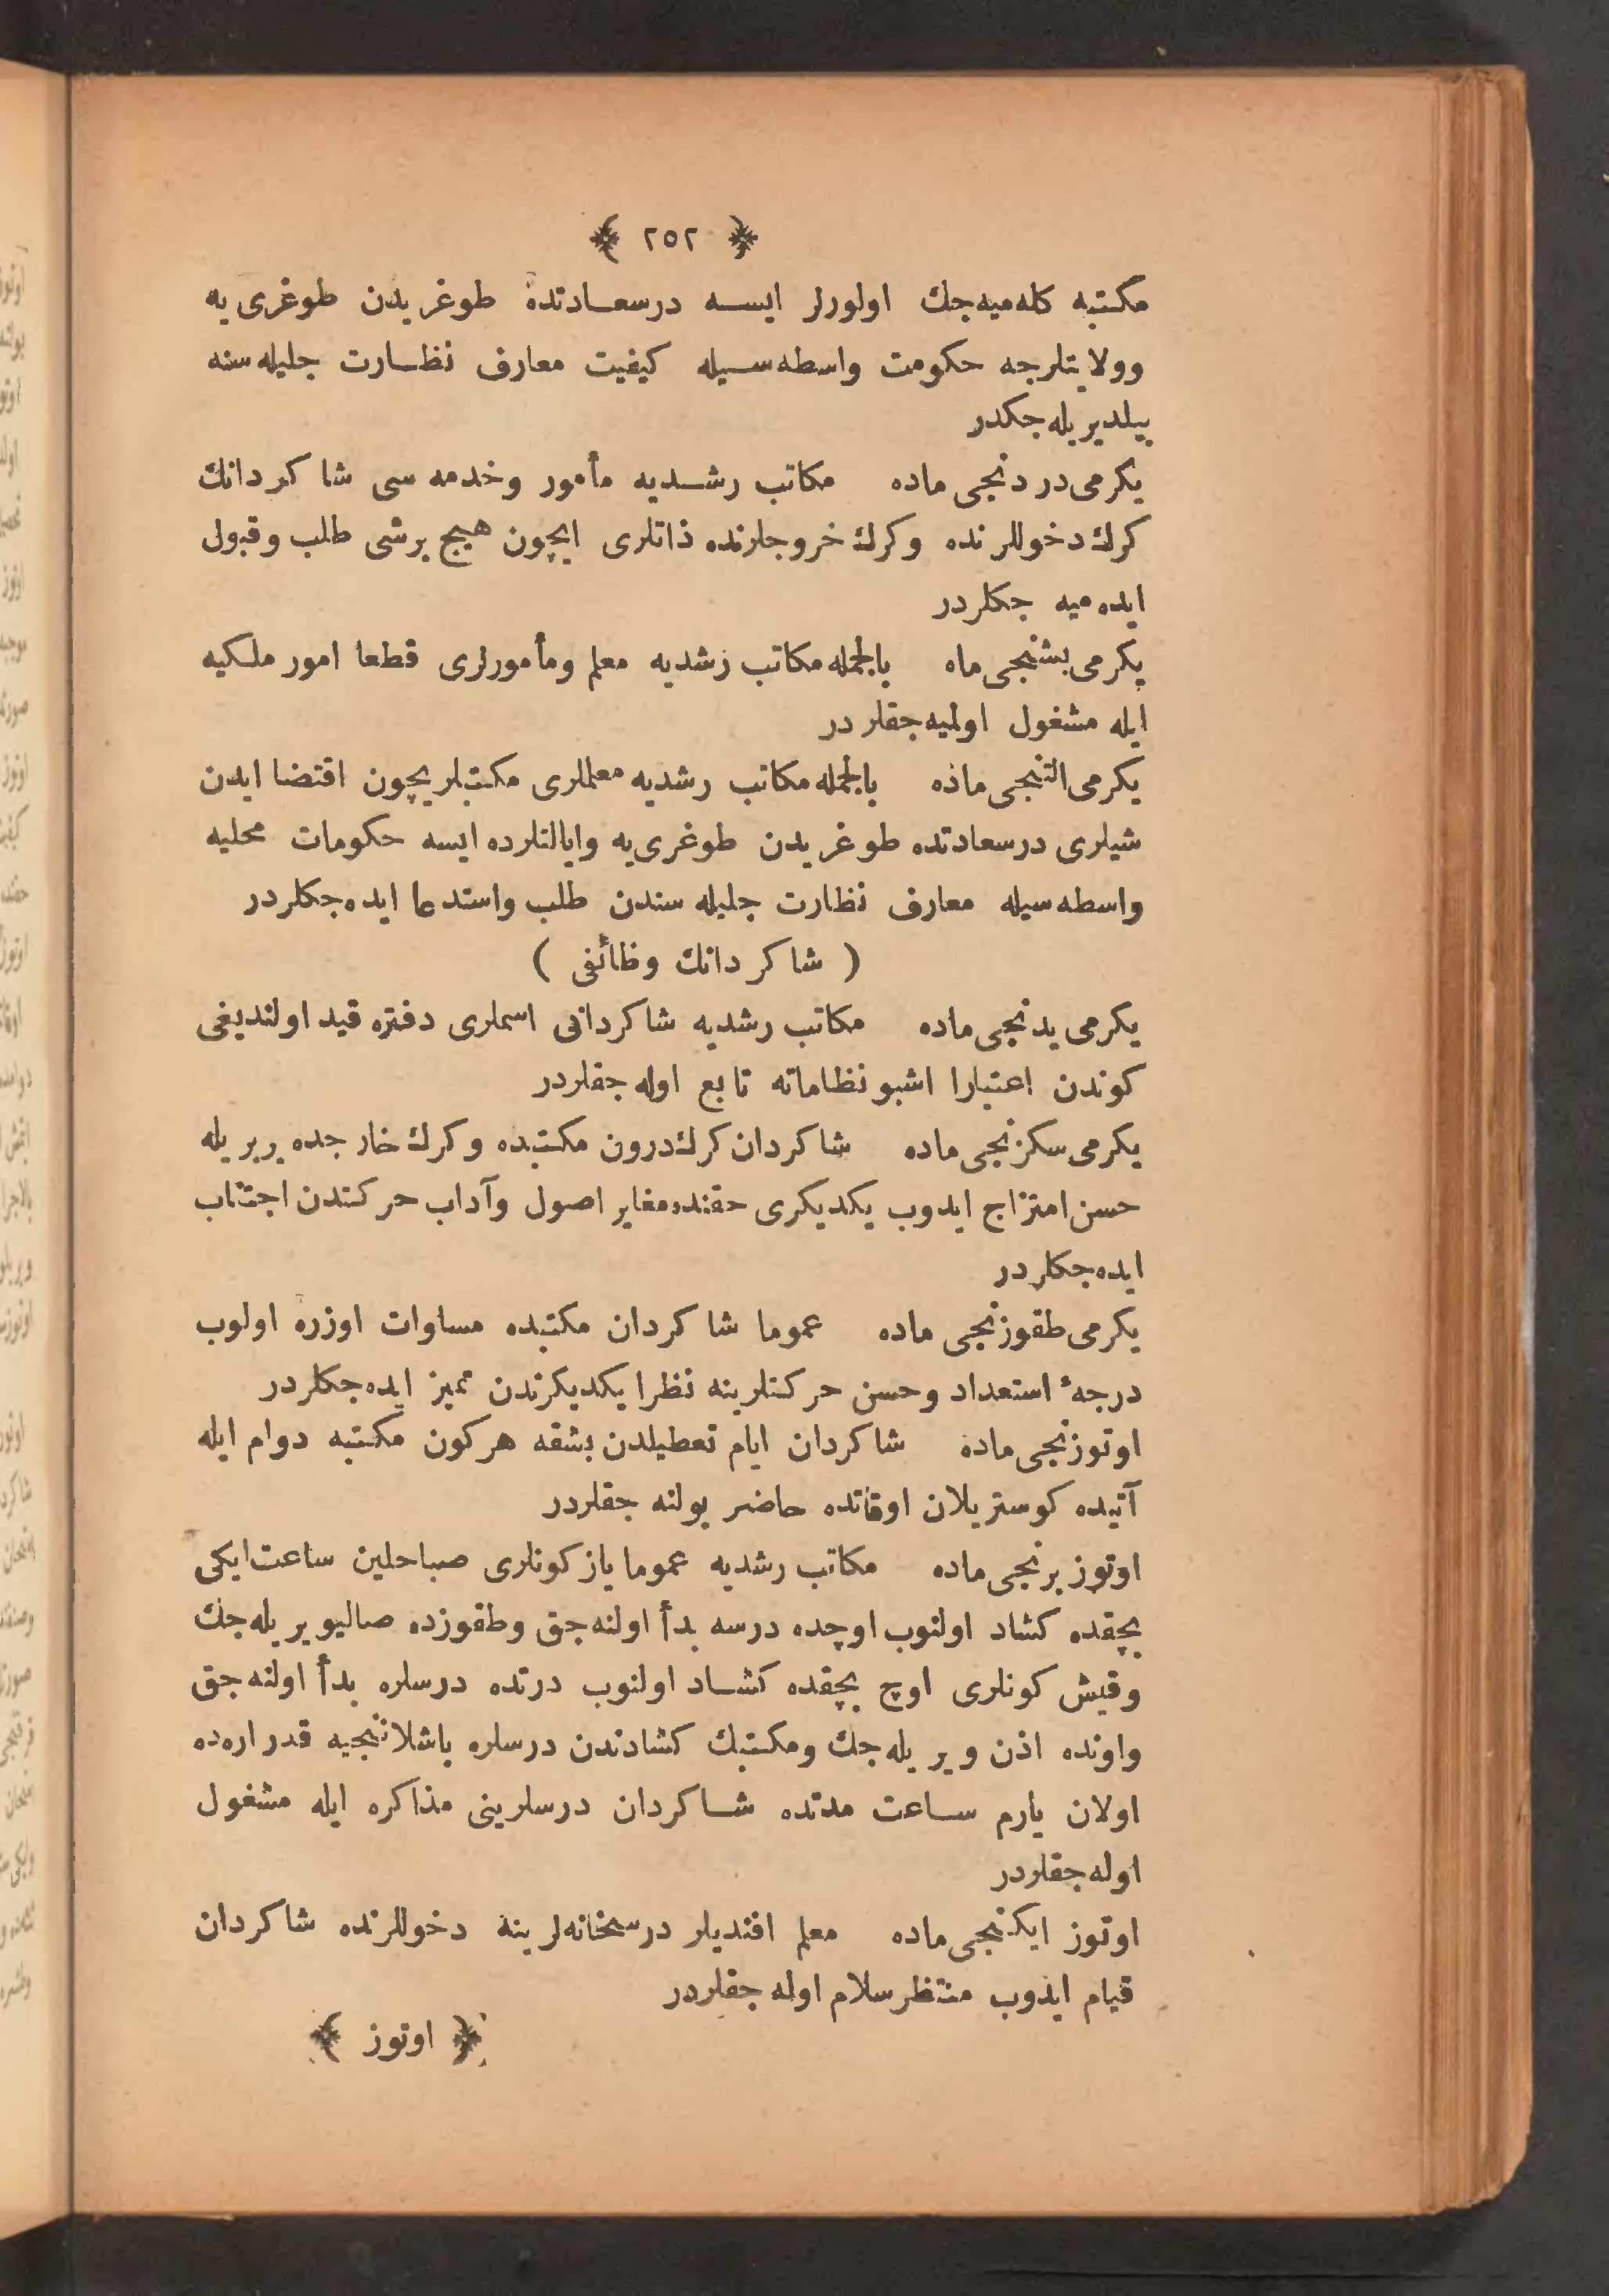 ﴿ ٢٥٢ ﴾
مكتبه كله‌ميه‌جك اولورلر ايسه درسعادتده طوغريدن طوغرى‌يه
وولايتلرجه حكومت واسطه‌سيله كيفيت معارف نظارت جليله‌سنه
بيلديريله‌جكدر
يكرمى‌دردنجى‌ماده مكاتب رشديه مأمور وخدمه سى شاكردانك
كرك دخوللرنده وكرك خروجلرنده ذاتلرى ايچون هيچ برشى طلب وقبول
ايده‌ميه جكلردر
يكرمى‌بشنجى‌ماه بالجمله مكاتب رشديه معلم ومأمورلرى قطعا امور ملكيه
ايله مشغول اولميه‌جقلردر
يكرمى‌التنجى‌ماده بالجمله مكاتب رشديه معلملرى مكتبلريچون اقتضا ايدن
شيلرى درسعادتده طوغريدن طوغرى‌يه وايالتلرده ايسه حكومات محليه
واسطه‌سيله معارف نظارت جليله سندن طلب واستدعا ايده‌جكلردر
( شاكردانك وظائفى )
يكرمى‌يدنجى‌ماده مكاتب رشديه شاكردانى اسملرى دفتره قيد اولنديغى
كوندن اعتبارا اشبو نظاماته تابع اوله‌جقلردر
يكرمى‌سكزنجى‌ماده شاكردان كرك درون مكتبده وكرك خارجده بربريله
حسن‌امتزاج ايدوب يكديكرى حقنده‌مغاير اصول وآداب حركتدن اجتناب
ايده‌جكلردر
يكرمى‌طقوزنجى ماده عموما شاكردان مكتبده مساوات اوزره اولوب
درجهٔ استعداد وحسن حركتلرينه نظرا يكديكرندن تميز ايده‌جكلردر
اوتوزنجى‌ماده شاكردان ايام تعطيلدن بشقه هركون مكتبه دوام ايله
آتيده كوستريلان اوقاتده حاضر بولنه جقلردر
اوتوز برنجى‌ماده مكاتب رشديه عموما ياز كونلرى صباحلين ساعت‌ايكى
بچقده كشاد اولنوب اوچده درسه بدأ اولنه‌جق وطقوزده صاليويريله‌جك
وقيش كونلرى اوچ بچقده كشاد اولنوب درتده درسلره بدأ اولنه‌جق
واونده اذن ويريله‌جك ومكتبك كشادندن درسلره باشلاننجيه قدر اره‌ده
اولان يارم ساعت مدتده شاكردان درسلرينى مذاكره ايله مشغول
اوله‌جقلردر
اوتوز ايكنجى‌ماده معلم افنديلر درسخانه‌لرينه دخوللرنده شاكردان
قيام ايدوب منتظرسلام اوله‌جقلردر
﴿ اوتوز ﴾